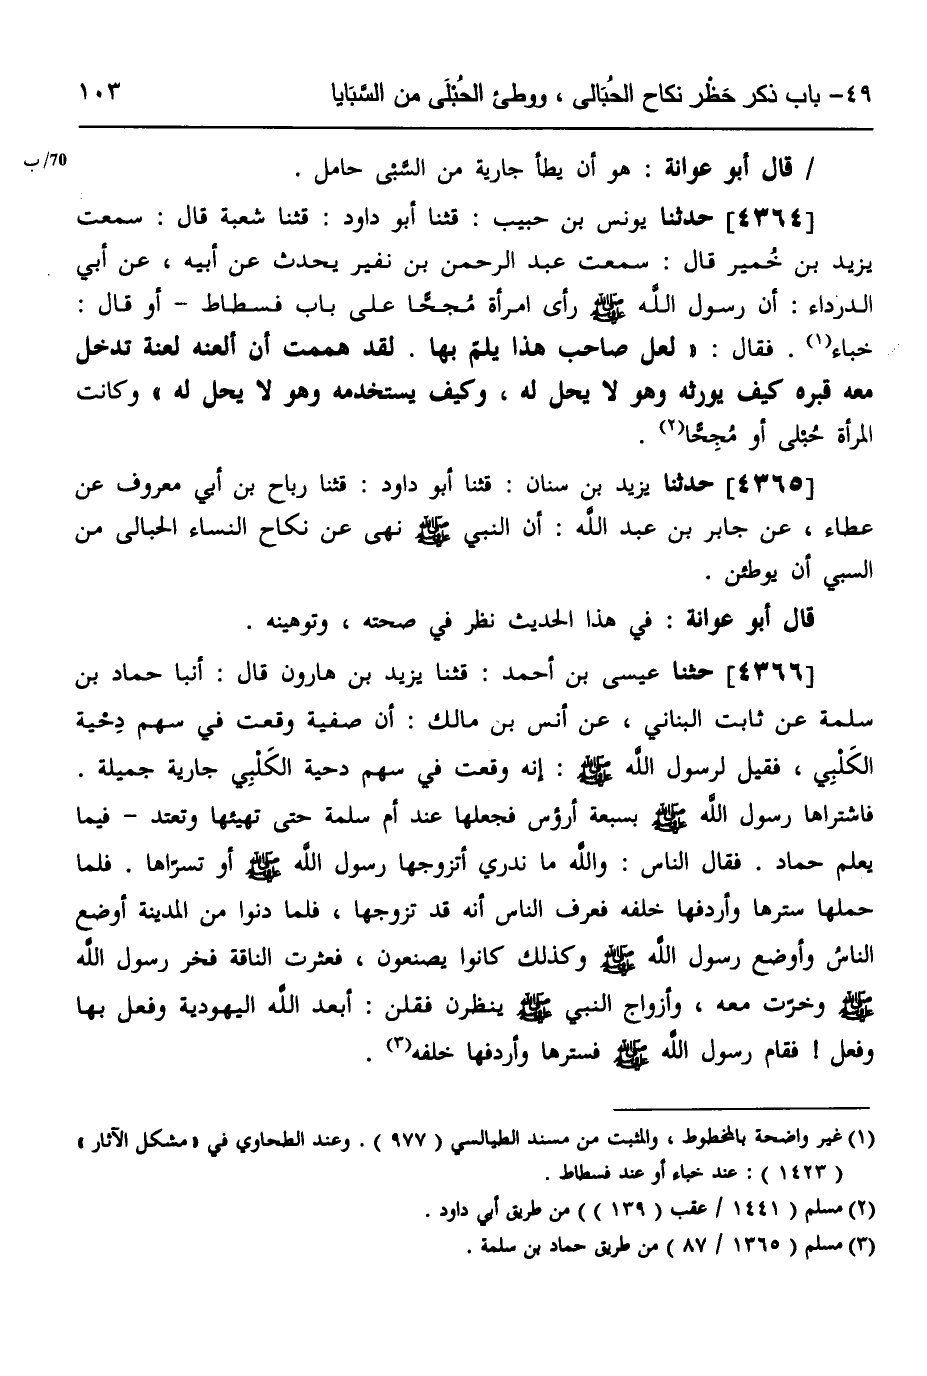 ٤٩- باب ذكر حَظْر نكاح الحُبَالى ، ووطئ الحُبْلَى من السَّبَايا ١٠٣
70/ ب
/ قال أبو عوانة : هو أن يطأ جارية من السَّبْى حامل .
[٤٣٦٤] حدثنا يونس بن حبيب : قثنا أبو داود : قثنا شعبة قال : سمعت
يزيد بن خُمير قال : سمعت عبد الرحمن بن نفير يحدث عن أبيه ، عن أبي
الدرداء : أن رسول اللَّه ﷺ رأى امرأة مُجحًّا على باب فسطاط - أو قال :
خباء(١) . فقال : « لعل صاحب هذا يلمّ بها . لقد هممت أن ألعنه لعنة تدخل
معه قبره كيف يورثه وهو لا يحل له ، وكيف يستخدمه وهو لا يحل له » وكانت
المرأة حُبْلى أو مُجِحًّا(٢) .
[٤٣٦٥] حدثنا يزيد بن سنان : قثنا أبو داود : قثنا رباح بن أبي معروف عن
عطاء ، عن جابر بن عبد اللَّه : أن النبي ﷺ نهى عن نكاح النساء الحبالى من
السبي أن يوطئن .
قال أبو عوانة : في هذا الحديث نظر في صحته ، وتوهينه .
[٤٣٦٦] حثنا عيسى بن أحمد : قثنا يزيد بن هارون قال : أنبا حماد بن
سلمة عن ثابت البناني ، عن أنس بن مالك : أن صفية وقعت في سهم دِحْية
الكَلْبِي ، فقيل لرسول اللَّه ﷺ : إنه وقعت في سهم دحية الكَلْبِي جارية جميلة .
فاشتراها رسول اللَّه ﷺ بسبعة أرؤس فجعلها عند أم سلمة حتى تهيئها وتعتد - فيما
يعلم حماد . فقال الناس : واللَّه ما ندري أتزوجها رسول اللَّه ﷺ أو تسرّاها . فلما
حملها سترها وأردفها خلفه فعرف الناس أنه قد تزوجها ، فلما دنوا من المدينة أوضع
الناسُ وأوضع رسول اللَّه ﷺ وكذلك كانوا يصنعون ، فعثرت الناقة فخر رسول اللَّه
ﷺ وخرّت معه ، وأزواج النبي ﷺ ينظرن فقلن : أبعد اللَّه اليهودية وفعل بها
وفعل ! فقام رسول اللَّه ﷺ فسترها وأردفها خلفه(٣) .
(١) غير واضحة بالمخطوط ، والمثبت من مسند الطيالسي ( ٩٧٧ ) . وعند الطحاوي في « مشكل الآثار »
( ١٤٢٣ ) : عند خباء أو عند فسطاط .
(٢) مسلم ( ١٤٤١ / عقب ( ١٣٩ ) ) من طريق أبي داود .
(٣) مسلم ( ١٣٦٥ / ٨٧ ) من طريق حماد بن سلمة .